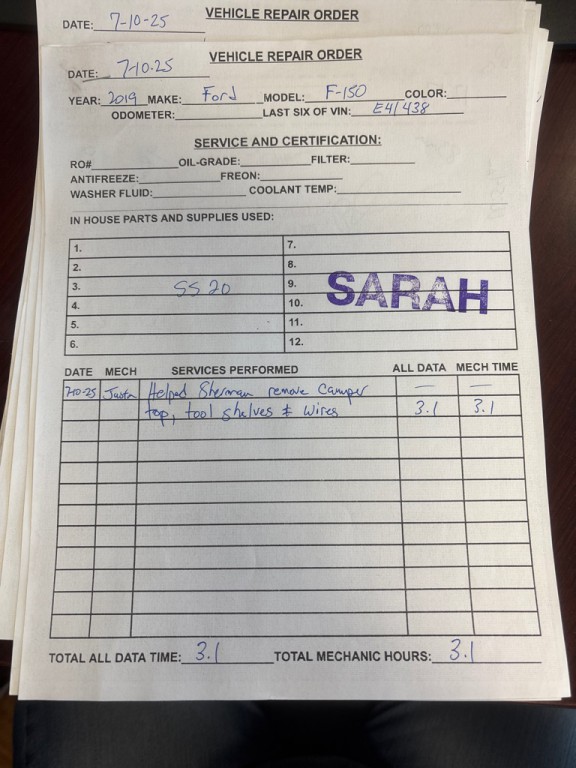 VEHICLE REPAIR ORDER
DATE: 7-10-25
VEHICLE REPAIR ORDER
DATE: 7-10-25
YEAR: 2019 MAKE: Ford MODEL: F-150 COLOR:
ODOMETER: LAST SIX OF VIN: E41438
SERVICE AND CERTIFICATION:
RO# OIL-GRADE: FILTER:
ANTIFREEZE: FREON:
WASHER FLUID: COOLANT TEMP:
IN HOUSE PARTS AND SUPPLIES USED:
1. 7.
2. 8.
3. SS 20 9.
4. 10.
SARAH
5. 11.
6. 12.
DATE MECH SERVICES PERFORMED ALL DATA MECH TIME
7-10-25 Justin Helped Sherman remove Camper — —
top, tool shelves & wires 3.1 3.1
TOTAL ALL DATA TIME: 3.1 TOTAL MECHANIC HOURS: 3.1